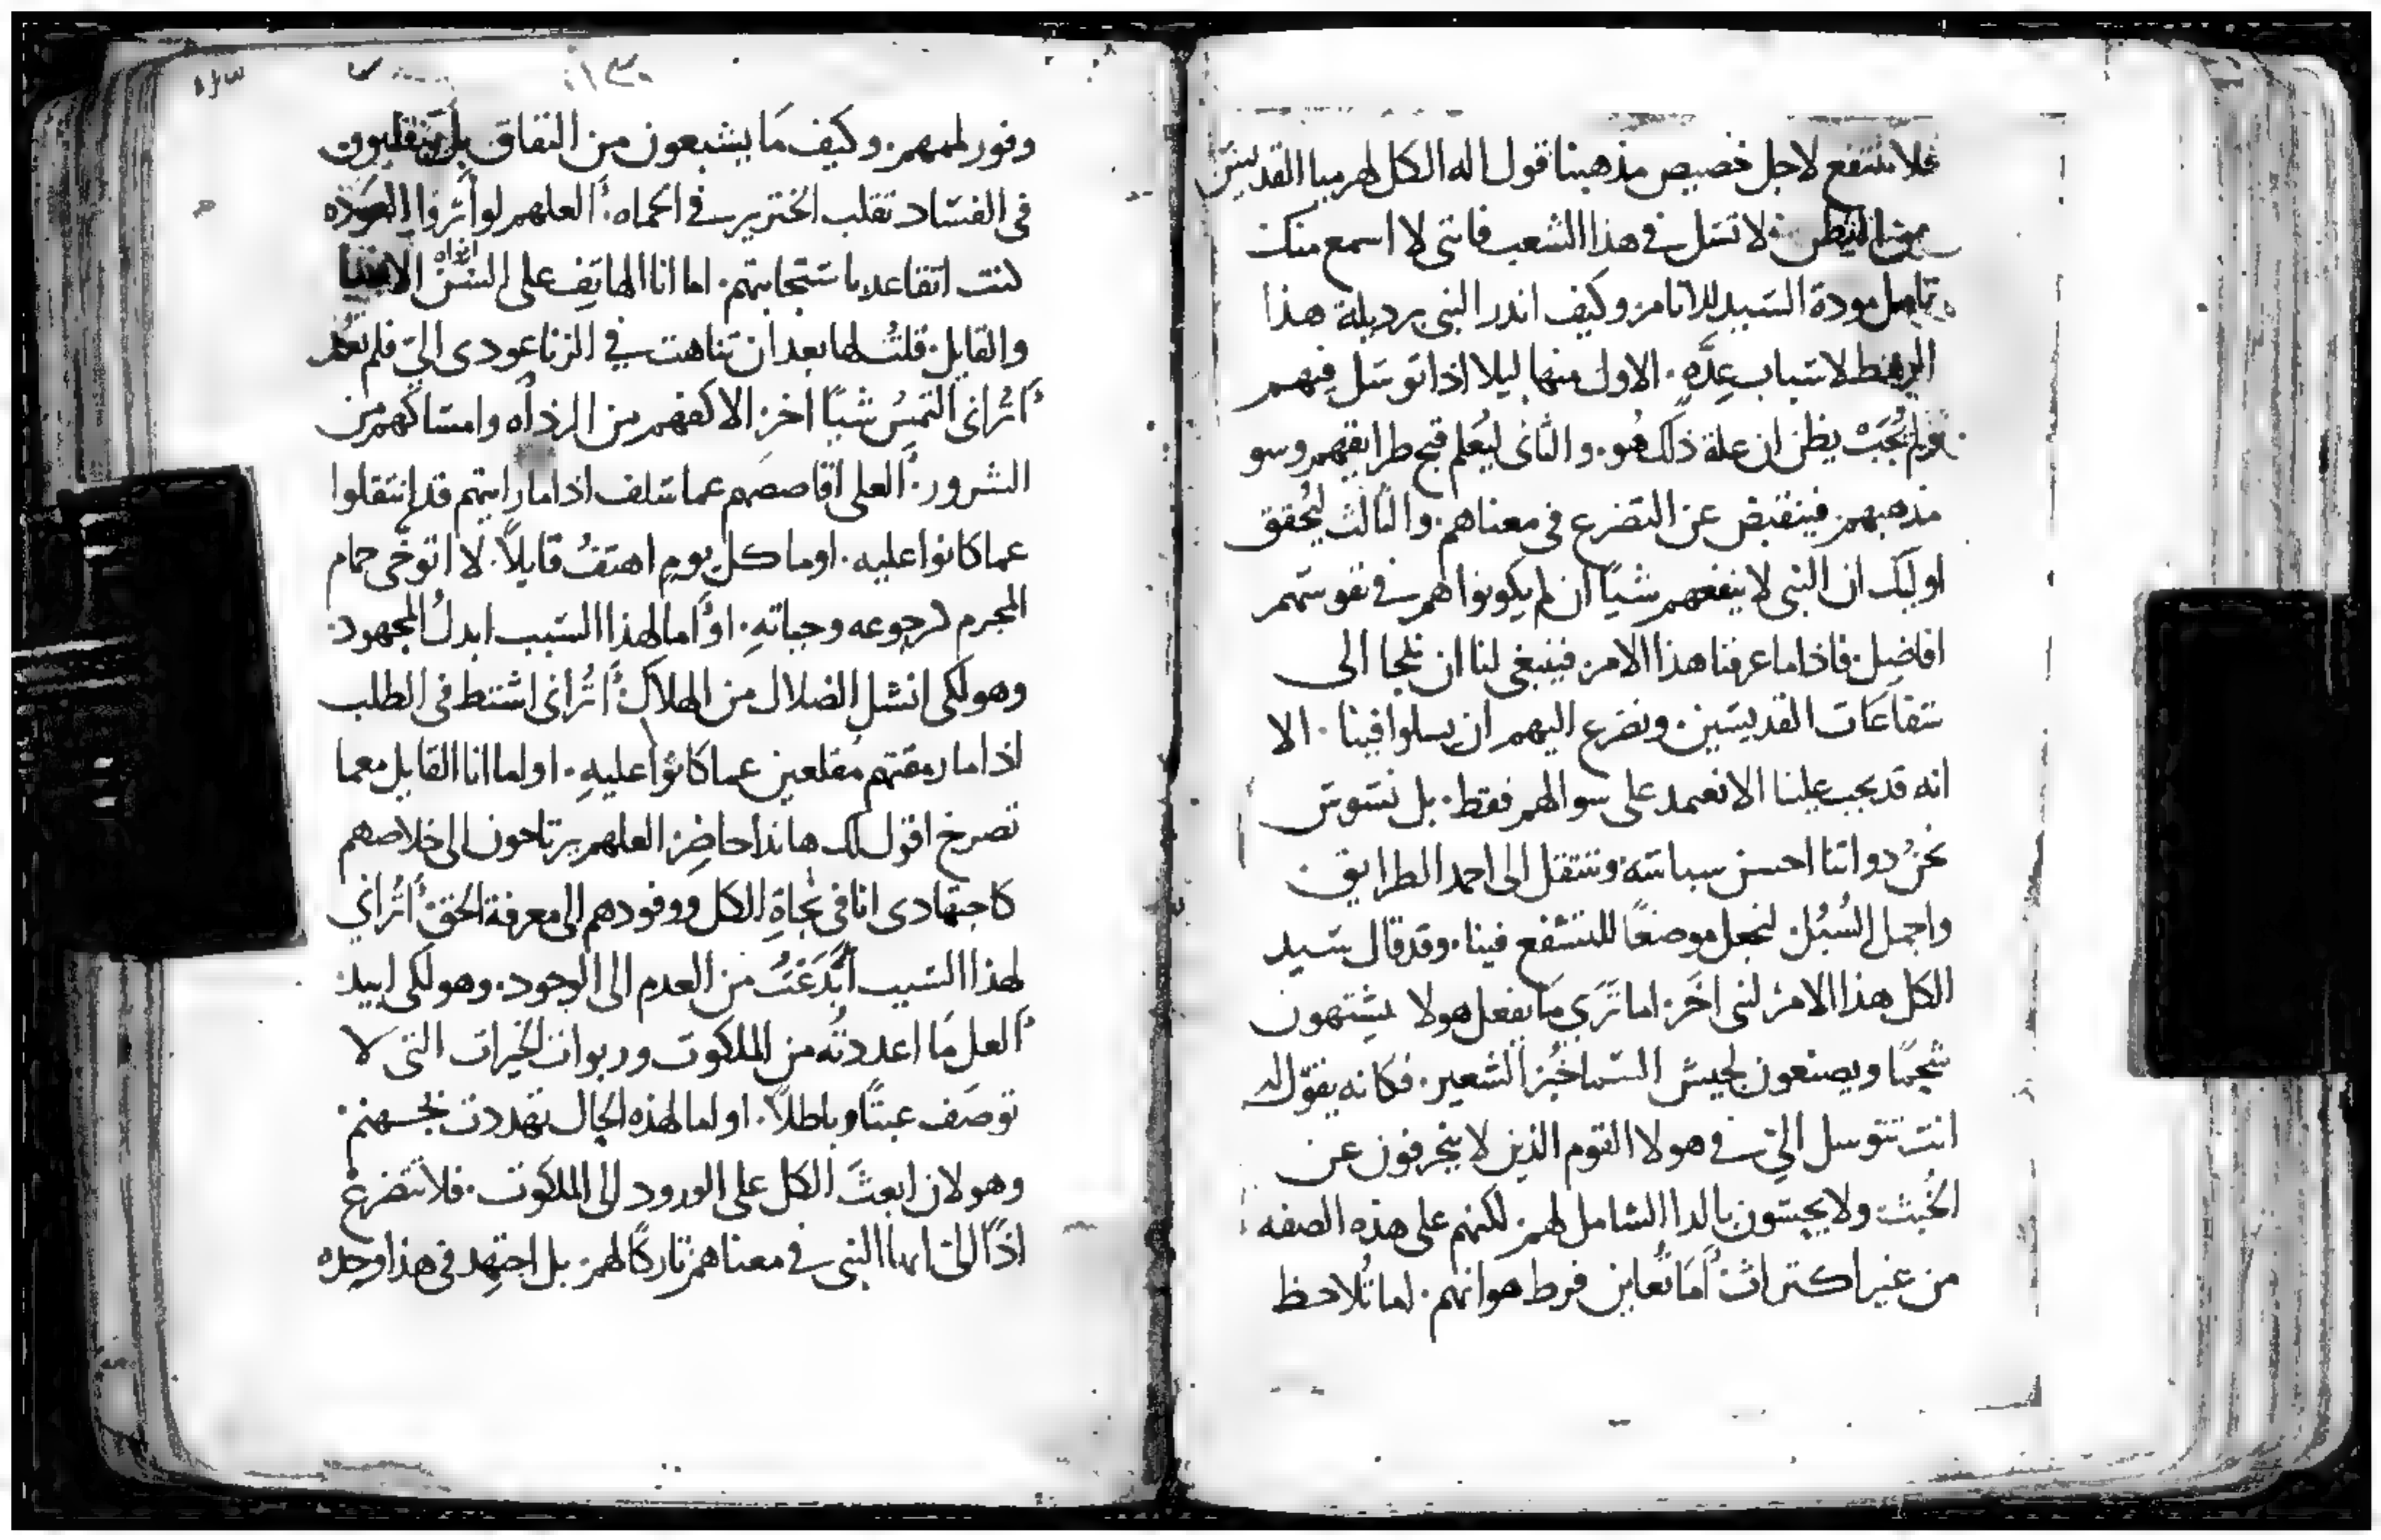 فلا ننتفع لاجل خصيص مذهبنا قول اله الكل لهرميا القديس
فلا تسل في هذا الشعب فانني لا اسمع منك
تامل مودة السيد للانام وكيف اندر النبي برديلة هذا
الرهط لاسباب عِدَّه. الاول منها ليلا اذا توسل فيهم
ولم يُجَبْ يظن ان علة ذلك هُو. والثاني ليَعلم قبح طرايقهم وسو
مذهبهم فينقبض عن التضرع في معناهم. والثالث ليُحقق
اوليك ان النبي لا ينفعهم شياً ان لم يكونوا هم في نفوسهم
افاضِل. فاذا ما عرفنا هذا الامر. فينبغي لنا ان نلجا الى
شفاعات القديسين. ونضرع اليهم ان يسلوا فينا. الا
انه قد يجب علينا الا نعتمد على سوالهم فقط. بل نسوس
نحنُ دواتنا احسن سياسة وننتقل الى احمد الطرايق.
واجمل السُبُل. لنجعل موضعًا للتشفع فينا. وقد قال سيد
الكل هذا الامر لنبي اخَر. اما تَرَي مَا يفعل هولا يشتهون
شحمًا ويصنعون لجيش السما خُبز الشعير. فكانه يقوّل له
انت تتوسل اليّ في هولا القوم الذين لا ينحرفون عن
الخُبث ولا يحسون بالدا الشامل لهم. لكنهم على هذه الصفه
من غير اكتراث أمَا تُعاين فرط هوانهم. اما تُلاحظ
وفور لممهم. وكيف مَا يشبعون من النفاق بل يتقلبون
في الفساد تقلب الخنزير في الحماه. العلهم لو أثروا
كنت اتقاعد باستجابتهم. اما انا الهاتِف على السُن الانبيا
والقايل. قلتُ لها بعد ان تناهت في الزنا عودي اليّ فلم تعُد
أتُراني التمِسُ شيًا اخر. الا كفهم من الرذاله وامساكهم من
الشرور. العلي اقاصصهم عما سَلف اذا ما رايتهم قد انتقلوا
عما كانوا عليه. اوما كل يوم اهتفُ قايلاً. لا اتوخّى حمام
المجرم كرجوعه وحياتهِ. اوَما لهذا السَبب ابدلُ المجهود.
وهو لكي انشل الضلال من الهلاك. أتُراني اشتط في الطلب
اذا ما رمقتهم مُقلعين عما كانوا عليهِ. اولما انا القايل معما
تصرخ اقول لك هانذا حاضِر. العلهم يرتاحون الى خلاصهم
كاجتهادي انا في نجاةِ الكل ووفودهم الى معرفة الحق. أتُراني
لهذا السَبب أبدَعْتُ من العدم الى الوجود. وهو لكي ابيد.
ألعل مَا اعددتُه من الملكوت وربوات الخيرات التي لا
توصَف عبثًا وباطلاً. اولما لهذه الحال تهددت بجهنم.
وهو لان ابعثَ الكل على الورود الى الملكوت. فلا تتضرع
اذًا اليّ ايها النبي في معناهم تاركًا لهم. بل اجتهد في هذا وحده